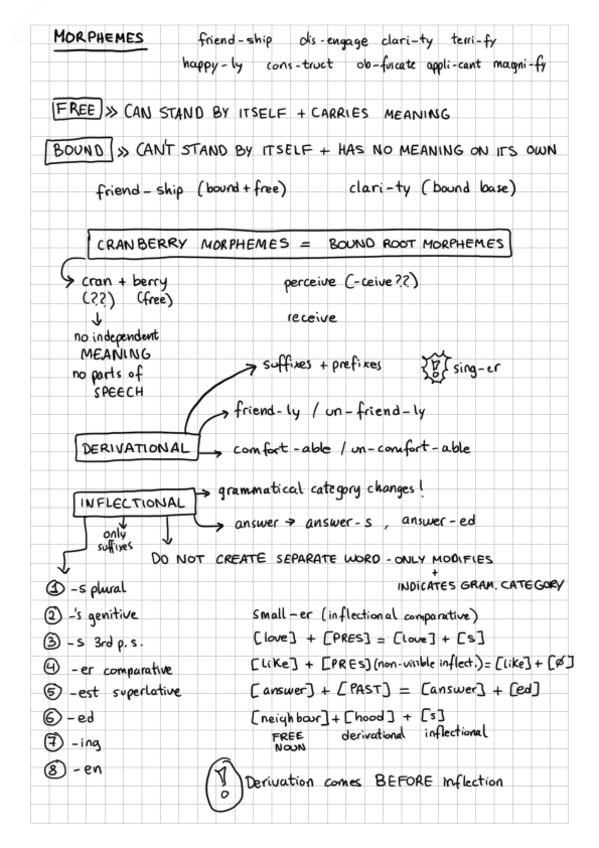 MORPHEMES
friend-ship dis-engage clari-ty terri-fy
happy-ly cons-truct ob-fuscate appli-cant magni-fy
FREE » CAN STAND BY ITSELF + CARRIES MEANING
BOUND » CAN'T STAND BY ITSELF + HAS NO MEANING ON ITS OWN
friend-ship (bound+free) clari-ty (bound base)
CRANBERRY MORPHEMES = BOUND ROOT MORPHEMES
cran + berry perceive (-ceive??)
(??) (free)
receive
no independent
MEANING
no parts of
SPEECH
suffixes + prefixes ! sing-er
friend-ly / un-friend-ly
DERIVATIONAL comfort-able / un-comfort-able
INFLECTIONAL → grammatical category changes!
answer → answer-s, answer-ed
only
suffixes
DO NOT CREATE SEPARATE WORD - ONLY MODIFIES
+
INDICATES GRAM. CATEGORY
① -s plural
② -'s genitive small-er (inflectional comparative)
③ -s 3rd p.s. [love] + [PRES] = [love] + [s]
④ -er comparative [Like] + [PRES] (non-visible inflect.) = [like] + [ø]
⑤ -est superlative [answer] + [PAST] = [answer] + [ed]
⑥ -ed [neighbour] + [hood] + [s]
FREE derivational inflectional
NOUN
⑦ -ing
⑧ -en
! Derivation comes BEFORE Inflection